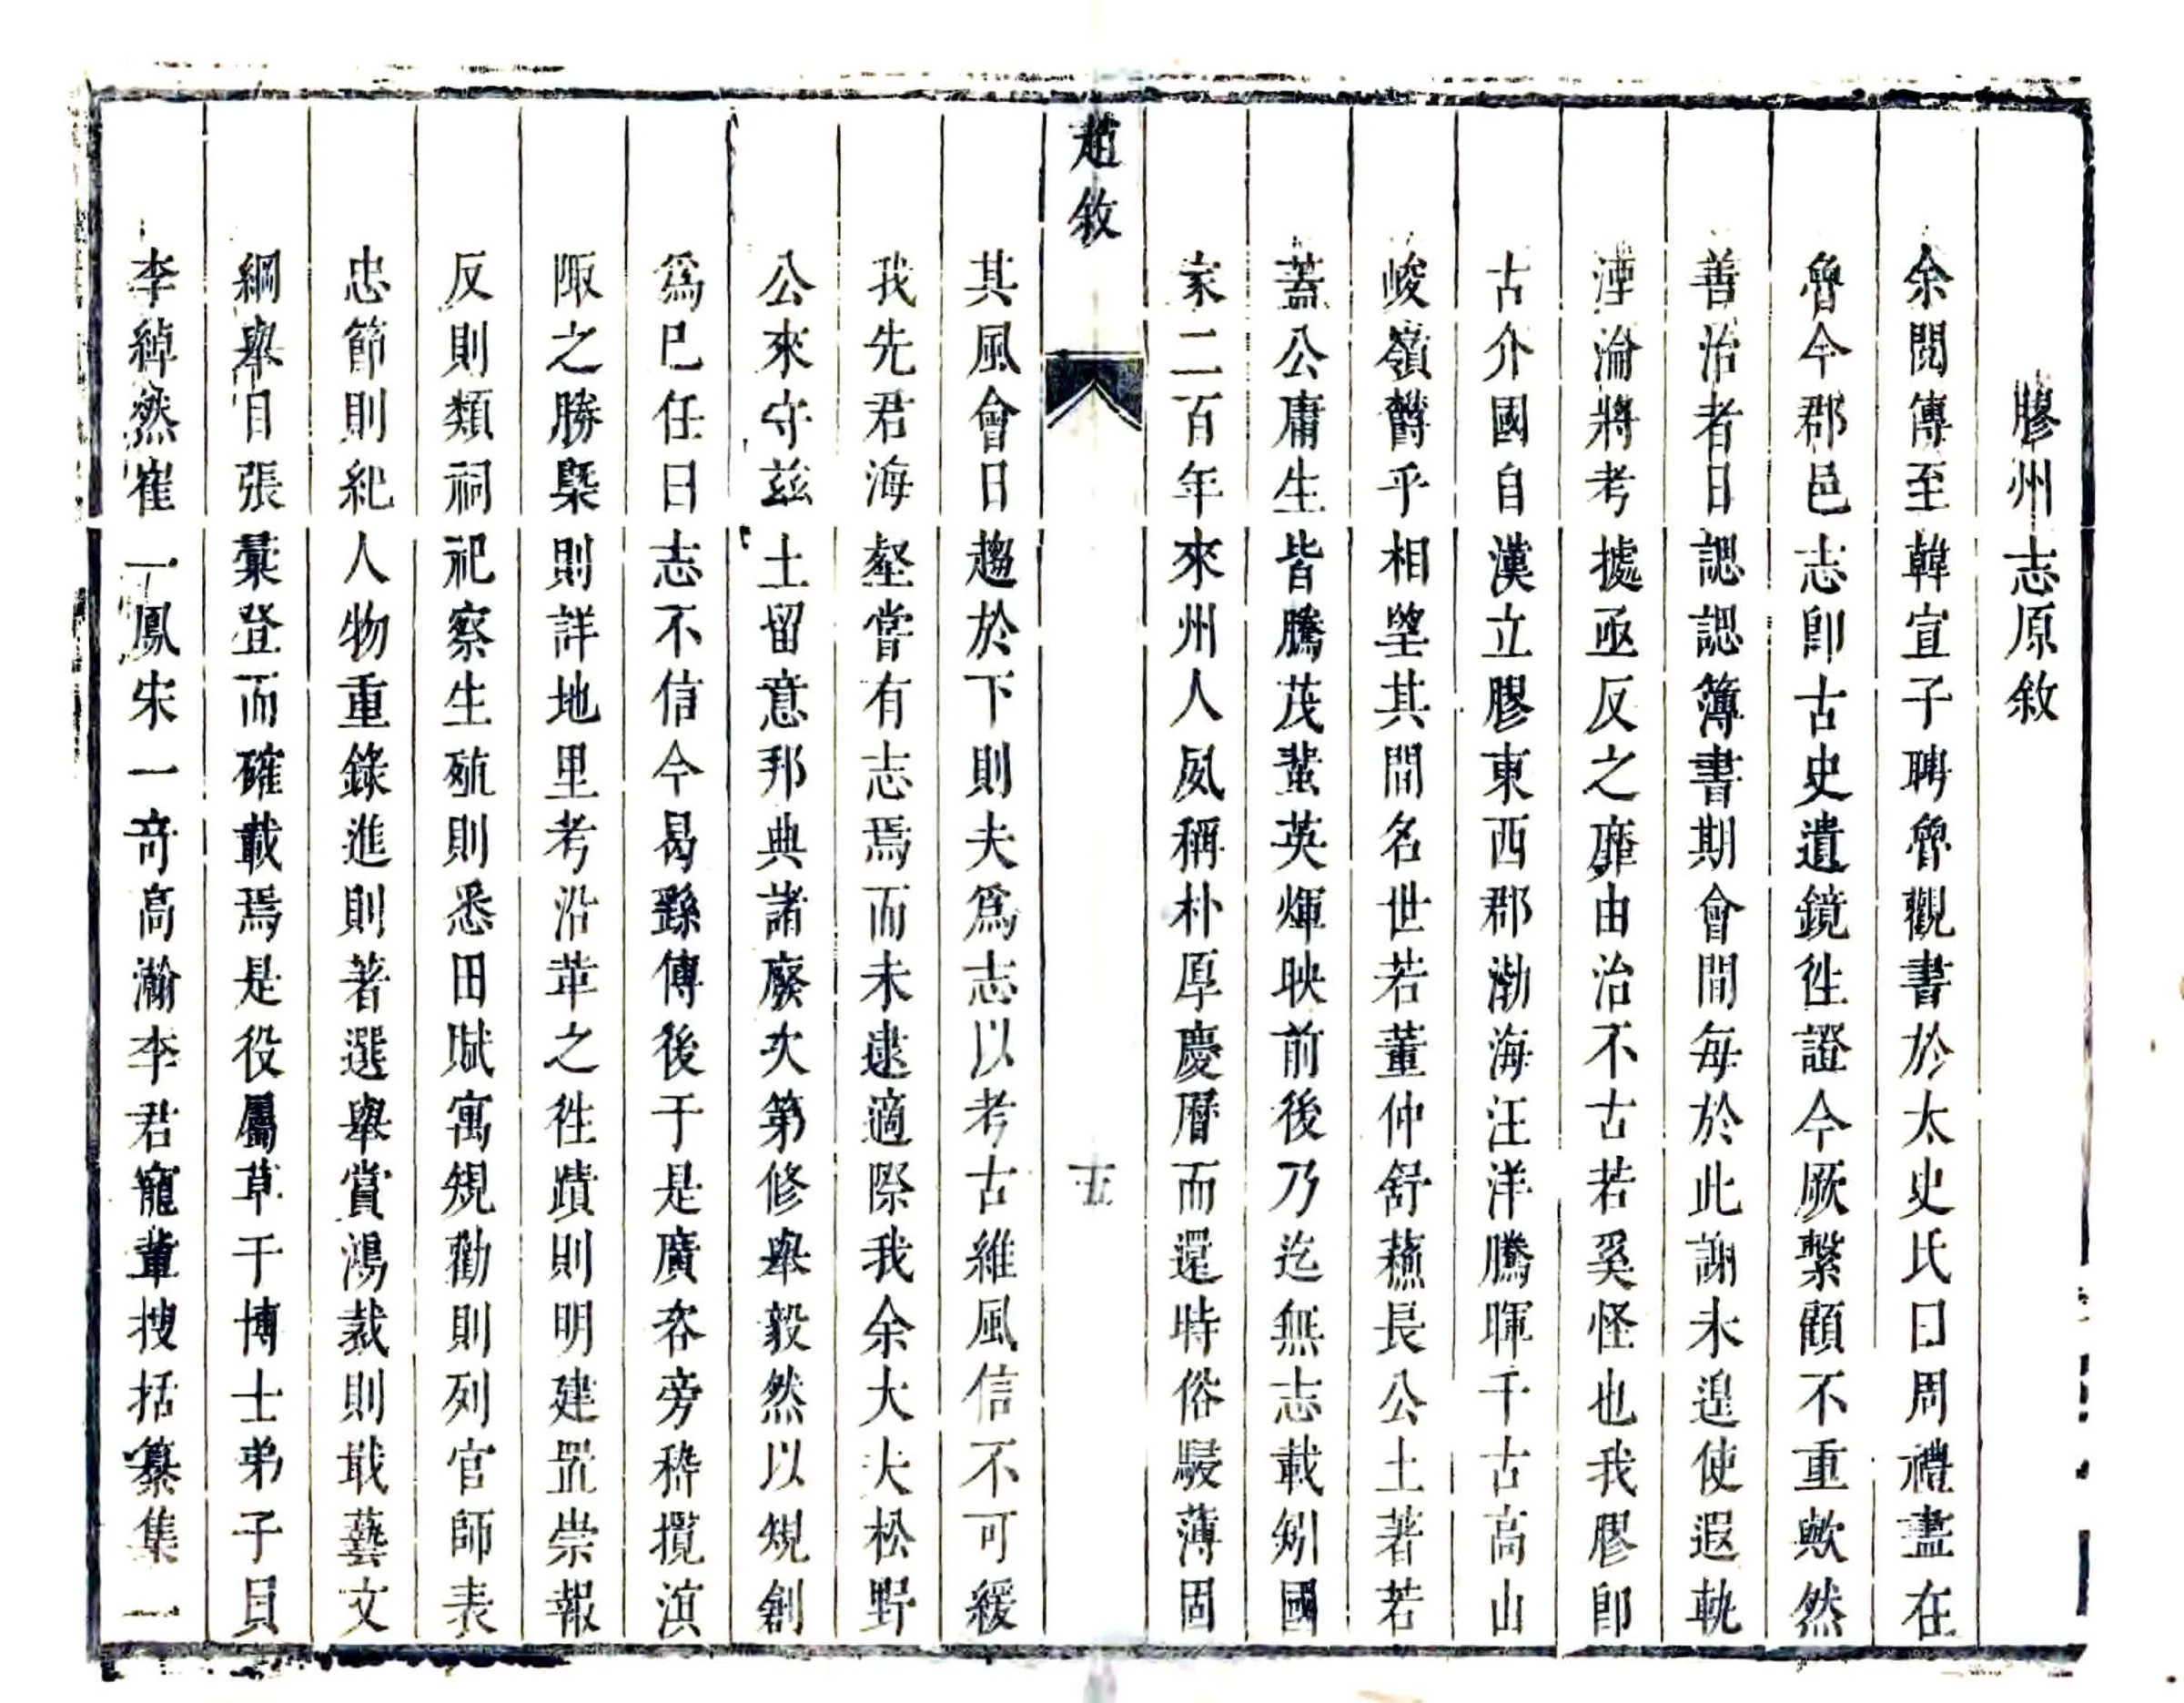 膠州志原敘
余閱傳至韓宣子聘魯觀書於太史氏曰周禮盡在
魯今郡邑志卽古史遺鏡徃證今厥繫顧不重歟然
善治者日諰諰簿書期會間每於此謝未遑使遐軌
湮淪將考據亟反之靡由治不古若奚怪也我膠卽
古介國自漢立膠東西郡渤海汪洋騰暉千古高山
峻嶺欝乎相望其間名世若董仲舒蘓長公土著若
蓋公庸生皆騰茂蜚英煇映前後乃迄無志載矧國
家二百年來州人夙稱朴厚慶曆而還時俗駸薄固
趙敘
其風會日趨於下則夫爲志以考古維風信不可緩
我先君海壑嘗有志焉而未逮適際我余大夫松野
公來守兹土留意邦典諸廢次第修舉毅然以䂓創
爲已任曰志不信今曷繇傳後于是廣咨旁稡攬
陬之勝槩則詳地里考沿革之徃蹟則明建置崇報
反則類祠祀察生㱥則悉田賦寓䂓勸則列官師表
忠節則紀人物重錄進則著選舉賞鴻裁則戢藝文
綱舉目張彙登而確載焉是役屬草于博士弟子員
李綽然崔一鳳宋一竒高瀚李君寵軰搜括纂集一